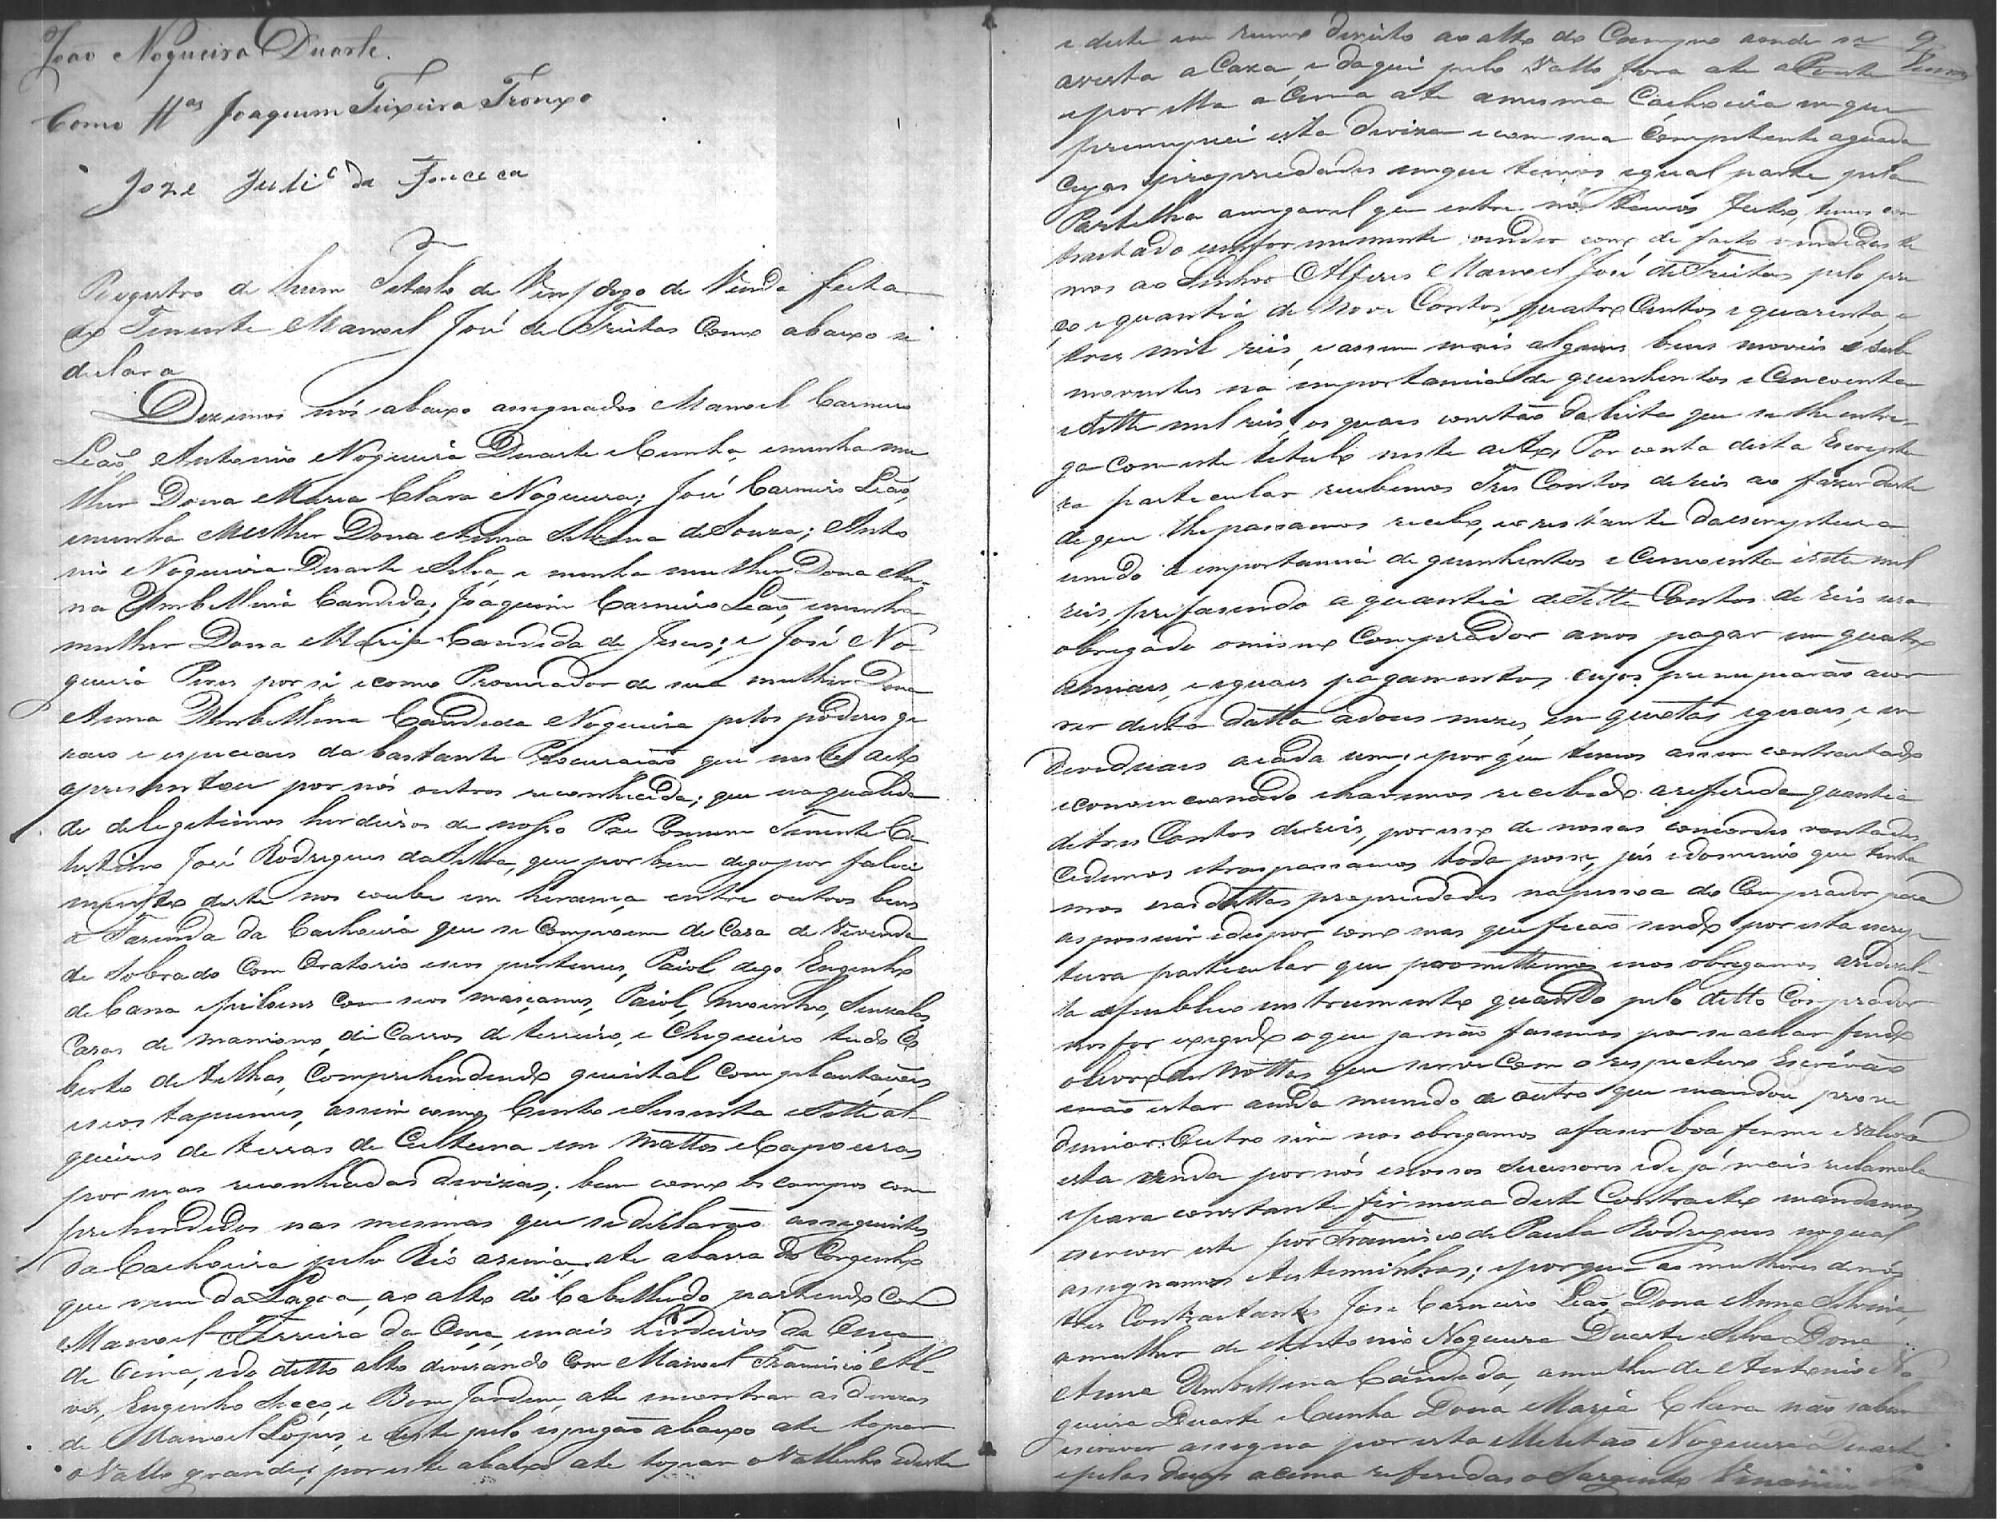 João Nogueira Duarte.
Como tt.as Joaquim Teixeira Tronxo
Joze Justi.c da Fonceca
Reegistro de hum Titulo de Ven/digo de Venda feita
ao Tenente Manoel José de Freitas como abaixo se
declara
Dizemos nós abaixo assignados Manoel Carneiro
Leão, Antonio Nogueira Duarte e Cunha, e minha mu
lher Dona Maria Clara Nogueira; José Carneiro Leão,
e minha Molher Dona Anna Silvina de Souza; Anto
nio Nogueira Duarte e Silva, e minha mulher Dona An
na Umbellina Candida; Joaquim Carneiro Leão, e minha
mulher Dona Maria Candida de Jesus; e José No
gueira Pires por si, e como Procurador de sua mulher Dona
Anna Umbellina Candida Nogueira pelos poderes ge
raes e especiaes da bastante Procuração que neste acto
apresentou por nós outros reconhecida; que na qualida
de de legitimos herdeiros de nosso Pae Commum Tenente
José Rodrigues da Silva, que por bem digo por faleci
mento deste nos coube em herança entre outros bens
a Fazenda da Cachoeira que se Compoem de Caza de Vivenda
de Sobrado Com Oratorio e seos pertences, Paiol, digo Engenho
de Cana e piloens com seos maçames, Paiol, moinho, Senzalas,
Cazas de manjono, de Carros de terreiro, e Chiqueiro tudo Co
berto de telhas, Comprehendendo quintal com plantações,
e seos tapumes, assim como Cento e Secenta e Sette al
queires de terras de Cultura em Mattos e Capoeiras
por suas reconhecidas divizas; bem como os campos com
prehendidos nas mesmas que se declarão as seguintes
da Cachoeira pelo Rio acima, ate abarra do Corguinho
que vem da Lagoa, ao alto do Cabelludo partindo Com
Manoel Ferreira da Onça, e mais herdeiros da Onça
de Cima, e do ditto alto divizando Com Manoel Francisco Al
ves, Engenho Secco, e Bom Jardim, ate encontrar as divizas
de Manoel Lopes, e deste pelo espigão abaixo ate topar
o Vallo grande; por este abaixo ate topar o Vallinho e deste
e deste em rumo direito ao alto do Campo aonde se
avista a Caza, e daqui pelo Vallo fora ate a Ponte
e por ella acima ate a mesma Cachoeira em que
principiei esta diviza e com sua Competente aguada
Cujas propriedades em que temos igual parte pela
Partilha amigavel que entre nós temos feito, temos con
tractado uniformemente vender como de facto vendidas te
mos ao Senhor Alferes Manoel José de Freitas pelo pre
ço e quantia de Nove Contos, quatro Centos e quarenta e
tres mil reis, e assim mais alguns bens moveis e semo
moventes na importancia de quinhentos e Cincoenta
e sette mil reis, os quaes constão da lista que se lhe entre
ga com este titulo neste acto. Por conta desta Escriptu
ra particular recebemos Tres Contos de reis ao fazer deste
de que lhe passamos recibo, e o restante da escriptura
unido a importancia de quinhentos e Cincoenta e sete mil
reis, prefazendo a quantia de Sette Contos de reis sera
obrigado o mesmo Comprador anos pagar em quatro
annuaes, e iguaes pagamentos, cujos principiarão acor
rer desta datta a dous mezes, em quotas iguaes, e in
dividuaes acada um; e por que temos assim contractado
e convencionado e havemos recebido a referida quantia
de tres Contos de reis, por isso de nossas concordes vontades
Cedemos e traspassamos toda posse, jus e dominio que tinha
mos nas dittas propriedades na pessoa do Comprador para
as possuir e dispor como suas que ficão sendo por esta escrip
tura particular que promettemos e nos obrigamos a redusil-
la a publico instrumento quando pelo ditto Comprador
nos for exegido o que ja não fazemos por se achar findo
o livro de Nottas que serve com o respectivo Escrivão
e não estar ainda munido de outro que mandou prove
denciar. Outro sim nos obrigamos a fazer boa firme e valioza
esta venda por nós e nossos sucessores e de já mais reclamala
e para constante firmeza deste Contracto mandamos
escrever este por Francisco de Paula Rodrigues no qual
assignamos e testeminhas; e porque as mulheres de nós
tres Contractantes José Carneiro Leão, Dona Anna Silvina,
a mulher de Antonio Nogueira Duarte e Silva Dona
Anna Umbellina Candida, a mulher de Antonio No
gueira Duarte e Cunha Dona Maria Clara não sabem
escrever assigna por esta Militão Nogueira Duarte
e pelas duas acima referidas o Sargento